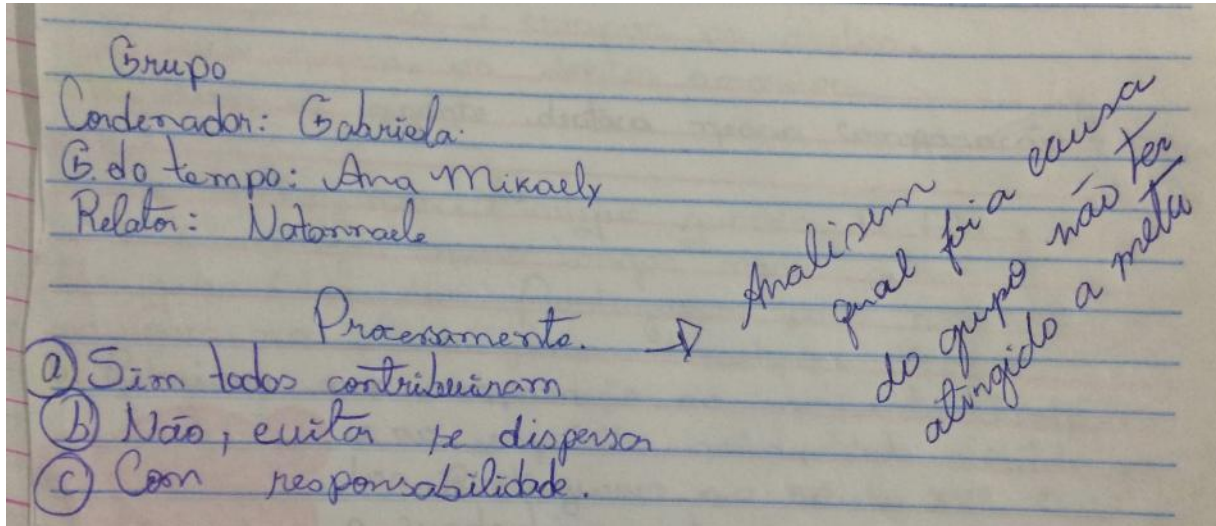 Grupo
Cordenador: Gabriela.
G. do tempo: Ana Mikaely
Relator: Natannaele
Processamento.
a) Sim todos contribuiram
b) Não, evitar se dispersar
c) Com responsabilidade.
→ Analisem
qual foi a causa
do grupo não ter
atingido a meta